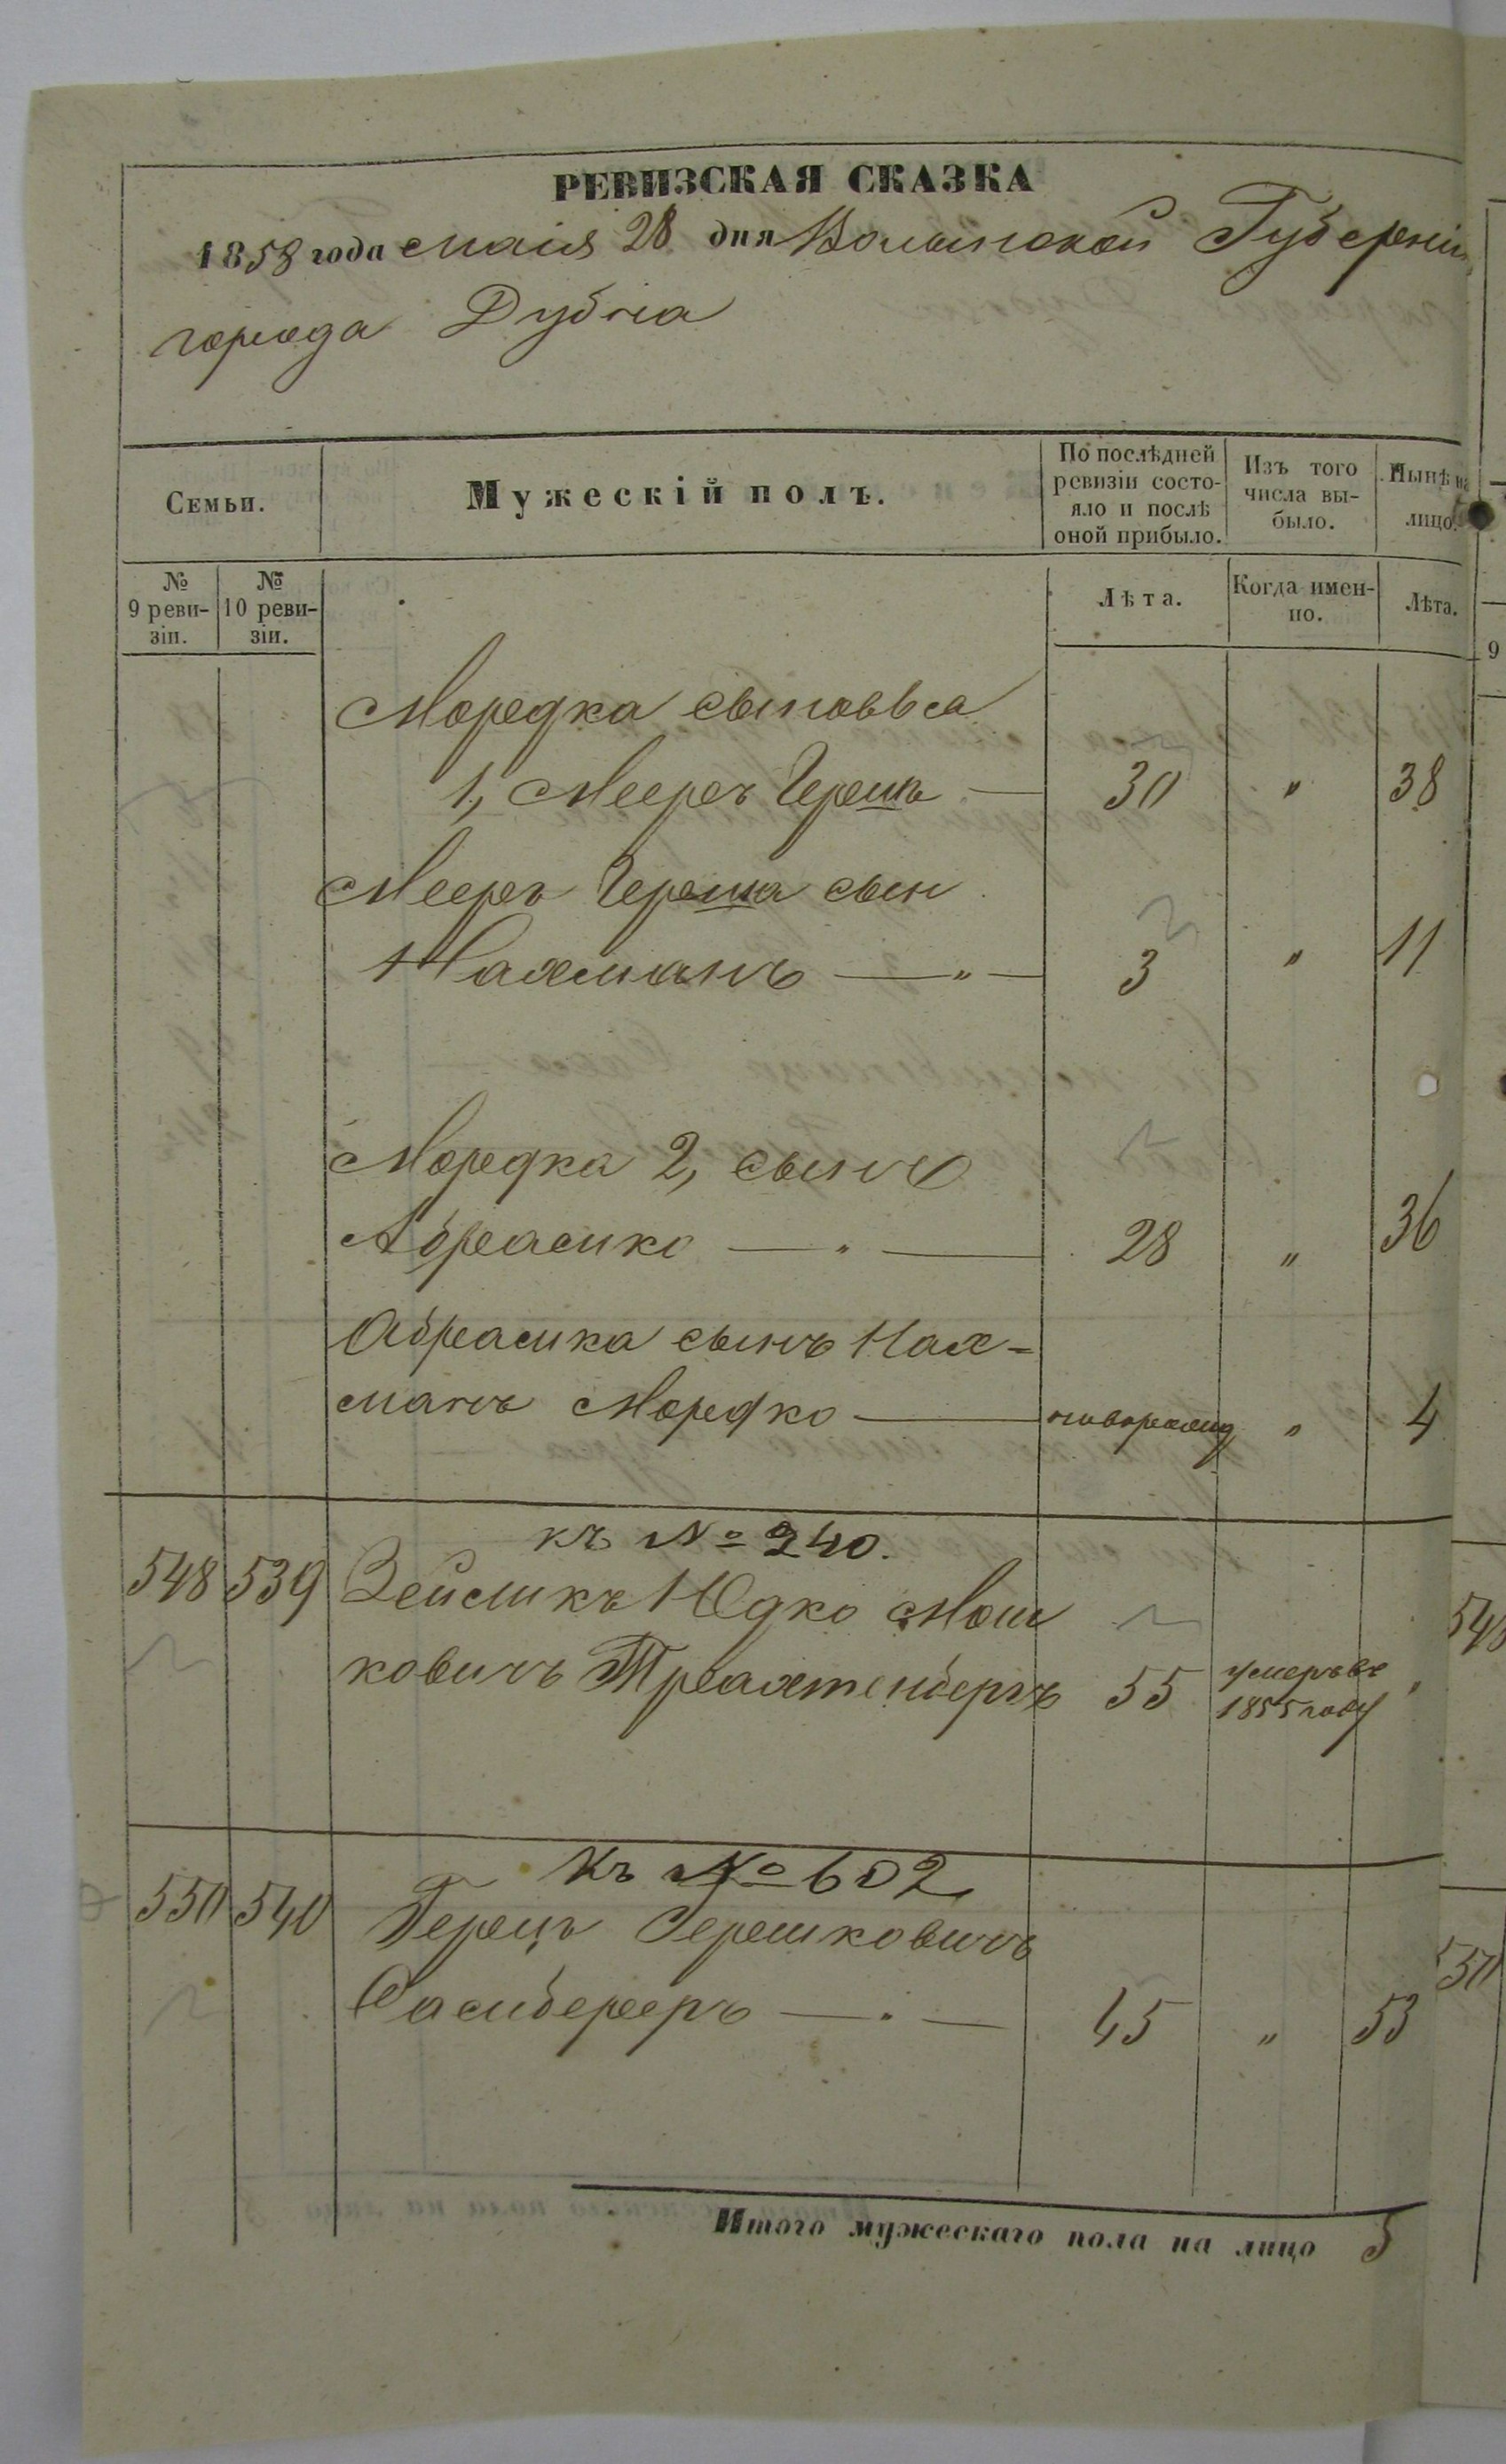 РЕВИЗСКАЯ СКАЗКА
1858 года маія 28 дня Волынской Губерніи
города Дубна
Семьи.
Мужескій полъ.
По послѣдней ревизіи состояло и послѣ оной прибыло.
Изъ того числа выбыло.
Нынѣ на лицо.
№ 9 ревизіи.
№ 10 ревизіи.
Лѣта.
Когда именно.
Лѣта.
Мордка сыновья
1, Мееръ Гершъ — 30 " 38
Мееръ Герша сын
Нахманъ — " — 3 " 11
Мордка 2, сынъ
Абрамко — " — 28 " 36
Абрамка сынъ Нах=
манъ Мордко — новорожд " 4
къ № 240.
548 539 Зейликъ Юдко Мош
ковичъ Трахтенбергъ 55 умеръ въ 1855 году "
къ № 602
550 540 Герецъ Гершковичъ
Самбереръ — " — 45 " 53
Итого мужескаго пола на лицо 5